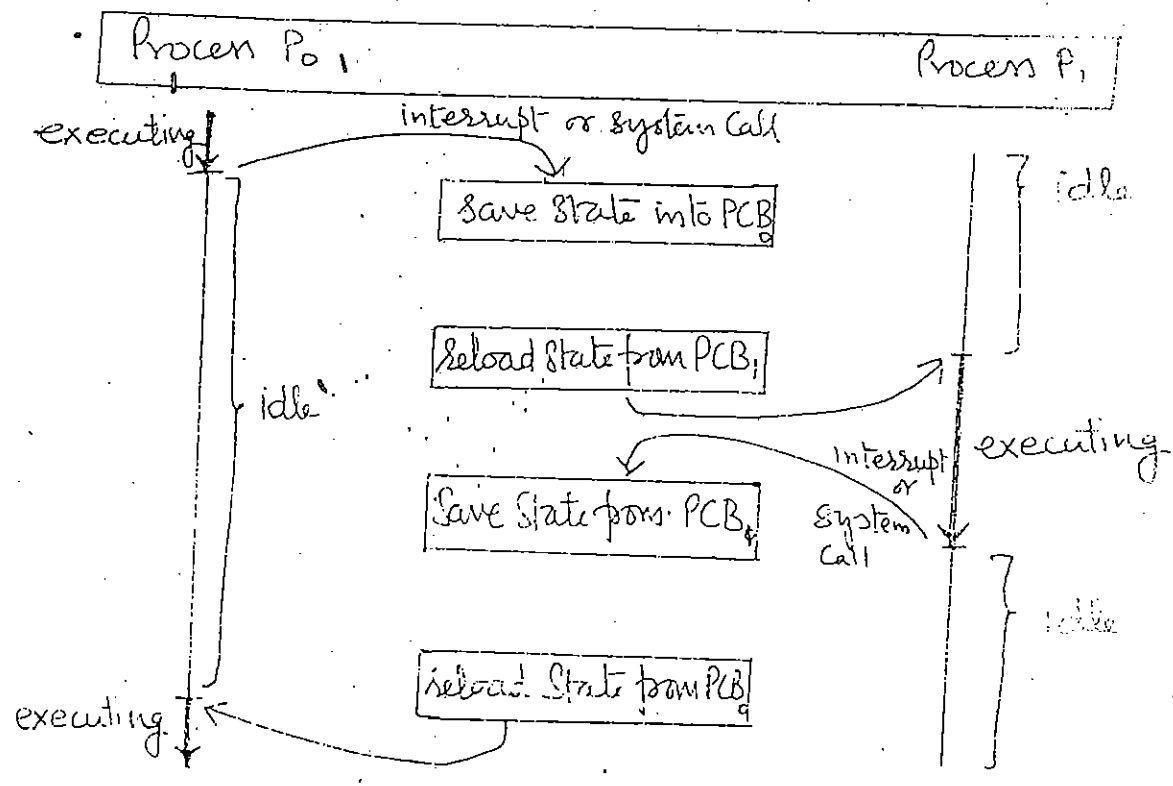 Process P0, Process P1
executing
interrupt or System Call
Save State into PCB0
idle
reload State from PCB1
idle
executing
interrupt
or
System
Call
Save State from PCB1
idle
reload State from PCB0
executing